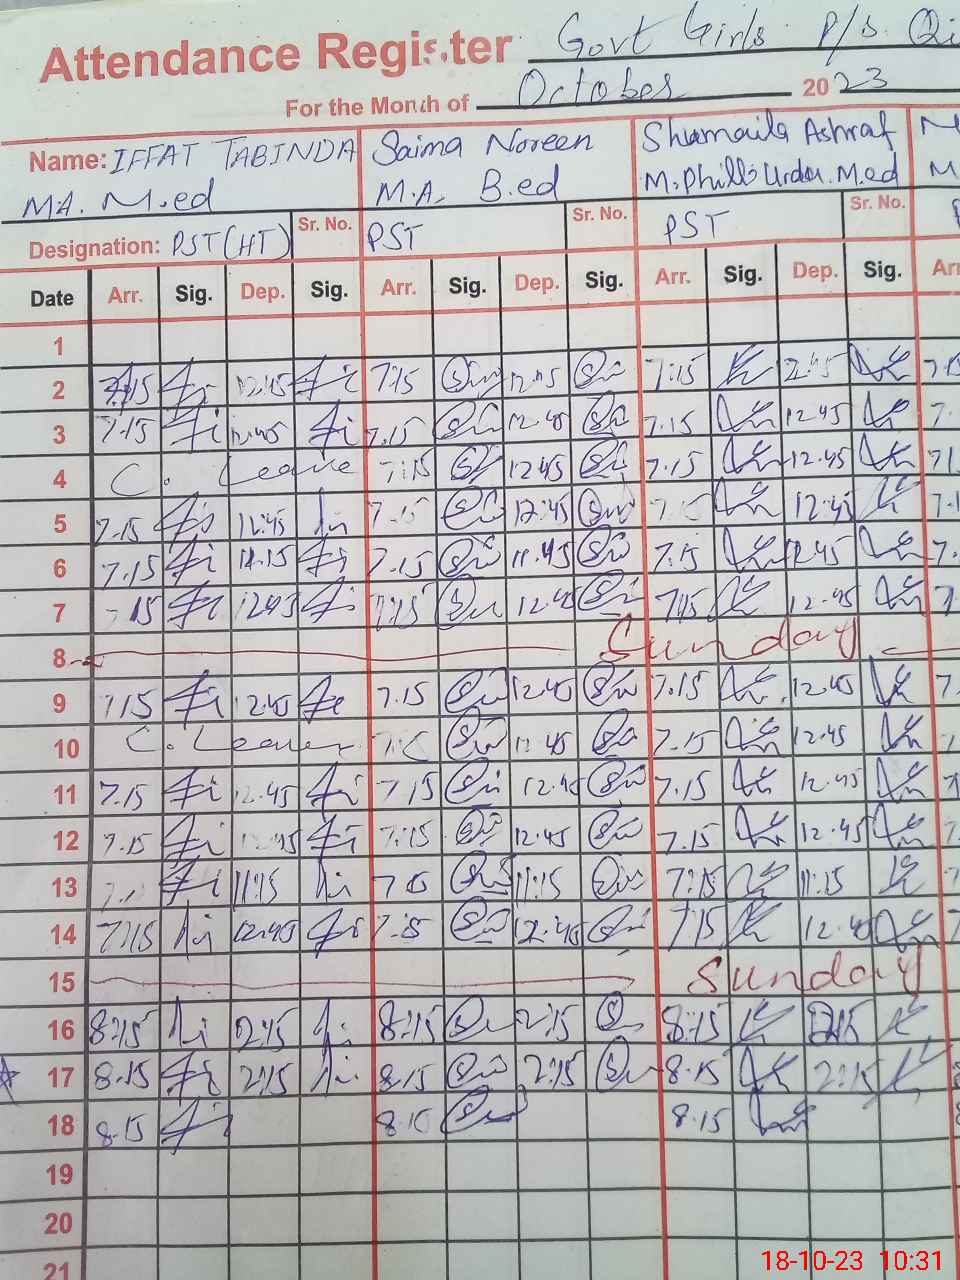 Attendance Register Govt Girls P/s. Qi
For the Month of October 2023
Name: IFFAT TABINDA Saima Noreen Shumaila Ashraf
MA. M.ed M.A, B.ed M.Phill Urdu. M.ed
Designation: PST(HT) Sr. No. PST Sr. No. PST Sr. No.
Date Arr. Sig. Dep. Sig. Arr. Sig. Dep. Sig. Arr. Sig. Dep. Sig. Arr
1
2 7.15 12:45 7:15 12.45 7:15 2:45
3 7.15 12.45 7.15 12.45 7.15 12.45
4 C. Leave 7:15 12.45 7.15 12.45
5 7.15 12.45 7.15 12.45 7.15 12.45
6 7.15 11.15 7.15 11.45 7.15 12.45
7 7.15 12.45 7:15 12.45 7:15 12.45
8 Sunday
9 7.15 12.45 7.15 12.45 7.15 12.45
10 C. Leave 12.45 7.15 12.45
11 7.15 12.45 7.15 12.45 7.15 12.45
12 7.15 12.45 7:15 12.45 7.15 12.45
13 11:15 11:15 7:15 11:15
14 7:15 12.45 12.45 7:15 12.45
15 Sunday
16 8:15 2:15 8:15 2:15 8:15 2:15
17 8.15 2:15 8.15 2:15 8.15 2:15
18 8.15 8.15 8.15
19
20
21
18-10-23 10:31